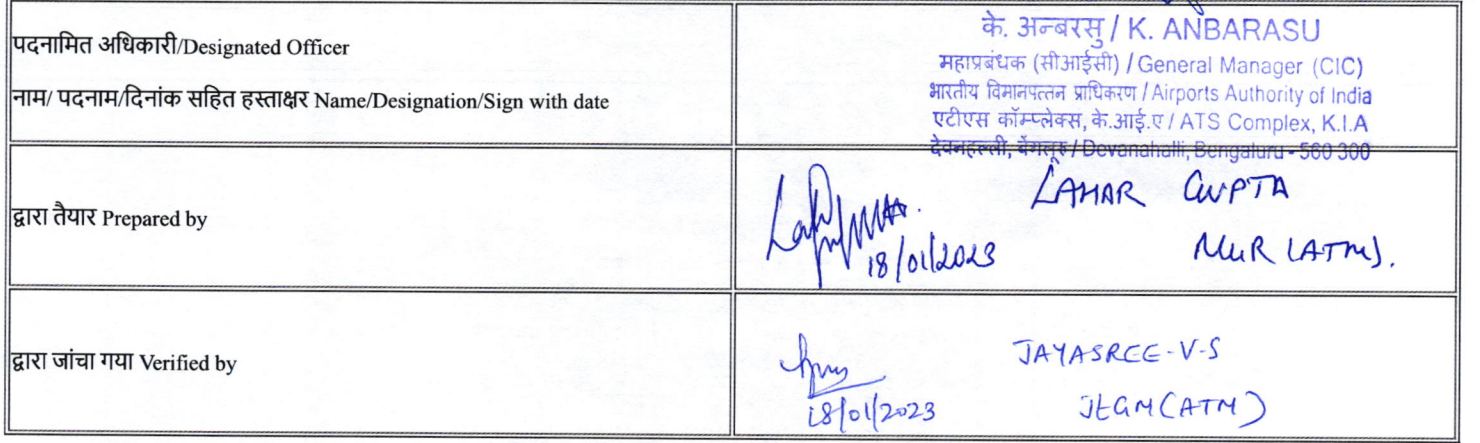 पदनामित अधिकारी/Designated Officer
नाम/ पदनाम/दिनांक सहित हस्ताक्षर Name/Designation/Sign with date
के. अन्बरसु / K. ANBARASU
महाप्रबंधक (सीआईसी) / General Manager (CIC)
भारतीय विमानपत्तन प्राधिकरण / Airports Authority of India
एटीएस कॉम्प्लेक्स, के.आई.ए / ATS Complex, K.I.A
देवनहल्ली, बेंगलूरु / Devanahalli, Bengaluru - 560 300
द्वारा तैयार Prepared by
18/01/2023
LAHAR GUPTA
MGR (ATM).
द्वारा जांचा गया Verified by
18/01/2023
JAYASREE-V-S
JtGM(ATM)